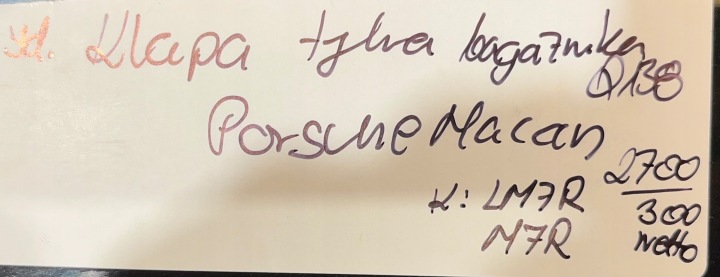 Klapa tylna bagażnika
Porsche Macan
2700
K: LM7R 300
M7R netto